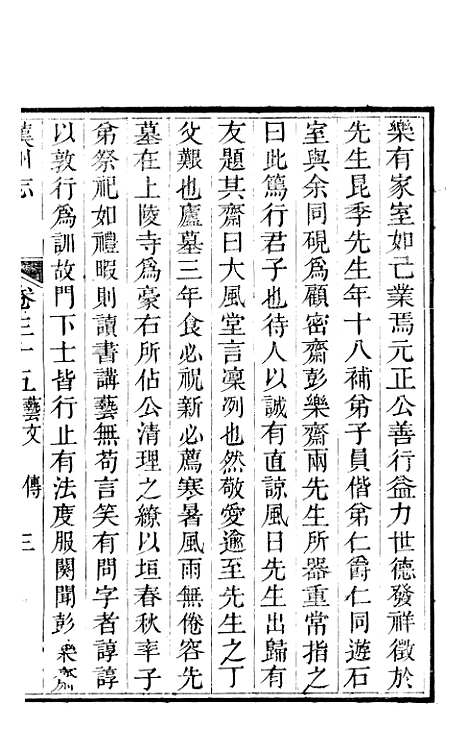 樂有家室如己業焉元正公善行益力世德發祥徵於
先生昆季先生年十八補弟子員偕弟仁爵仁同遊石
室與余同硯爲顧密齋彭樂齋兩先生所器重常指之
曰此篤行君子也待人以誠有直諒風日先生出歸有
友題其齋曰大風堂言凜冽也然敬愛逾至先生之丁
父艱也廬墓三年食必祝新必薦寒暑風雨無倦容先
墓在上陵寺爲豪右所佔公清理之繚以垣春秋率子
弟祭祀如禮暇則讀書講藝無苟言笑有問字者諄諄
以敦行爲訓故門下士皆行止有法度服闋聞彭樂齋
漢州志 卷三十五藝文 傳 三